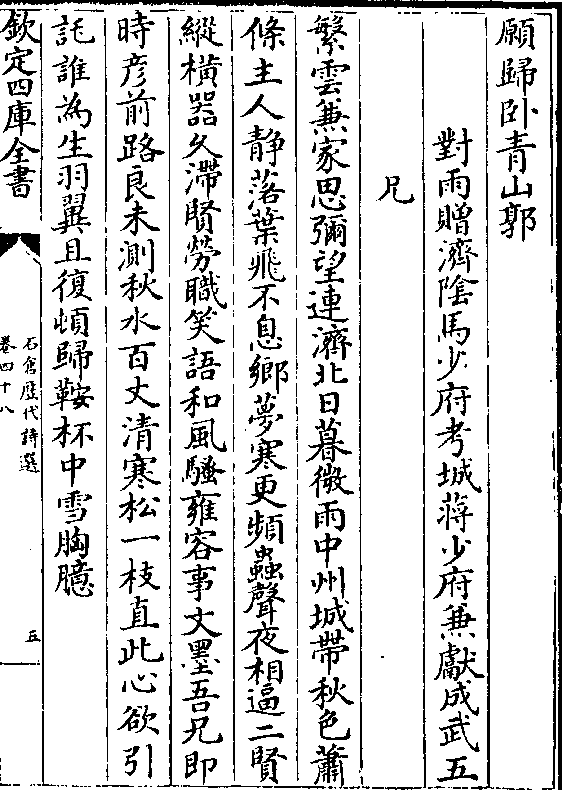 願歸卧青山郭
對雨贈濟陰馬少府考城蔣少府兼獻成武五
兄
繁雲兼家思彌望連濟北日暮微雨中州城帶秋色蕭
條主人静落葉飛不息鄉夢寒更頻蟲聲夜相逼二賢
縱横器久滯賢勞職笑語和風騷雍容事文墨吾兄即
時彦前路良未測秋水百丈清寒松一枝直此心欲引
託誰為生羽翼且復頓歸鞍杯中雪胸臆
欽定四庫全書
石倉歷代詩選
卷四十八
五